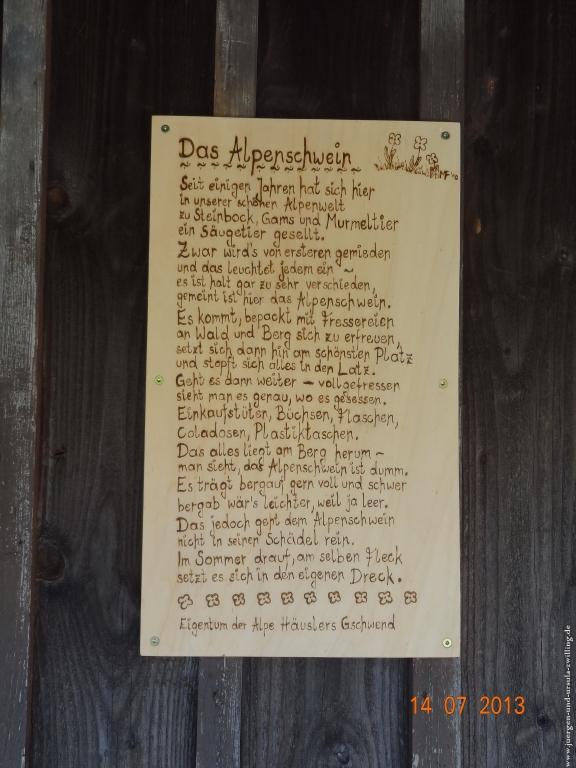 Das Alpenschwein
MF 40
Seit einigen Jahren hat sich hier
in unserer schönen Alpenwelt
zu Steinbock, Gams und Murmeltier
ein Säugetier gesellt.
Zwar wird's von ersteren gemieden
und das leuchtet jedem ein ~
es ist halt gar zu sehr verschieden,
gemeint ist hier das Alpenschwein.
Es kommt, bepackt mit Fressereien
an Wald und Berg sich zu erfreuen,
setzt sich dann hin am schönsten Platz
und stopft sich alles in den Latz.
Geht es dann weiter – vollgefressen
sieht man es genau, wo es gesessen.
Einkaufstüten, Büchsen, Flaschen,
Coladosen, Plastiktaschen.
Das alles liegt am Berg herum ~
man sieht, das Alpenschwein ist dumm.
Es trägt bergauf gern voll und schwer
bergab wär's leichter, weil ja leer.
Das jedoch geht dem Alpenschwein
nicht in seinen Schädel rein.
Im Sommer drauf, am selben Fleck
setzt es sich in den eigenen Dreck.
Eigentum der Alpe Häuslers Gschwend
14 07 2013
www.juergen-und-ursula-zwilling.de